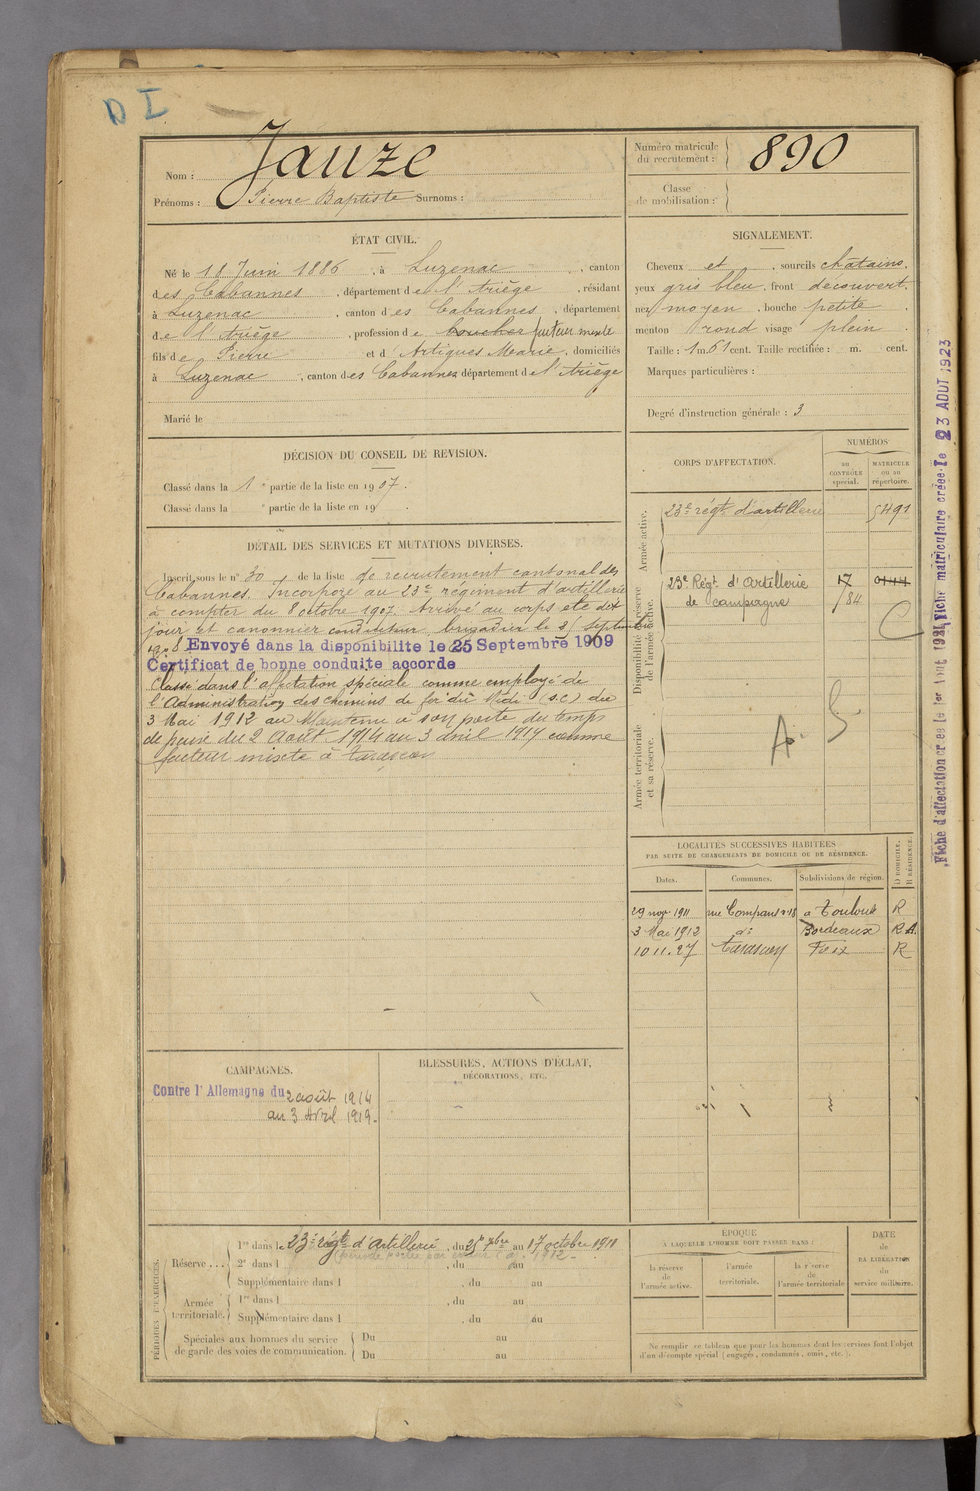 D I
Nom : Jauze
Prénoms : Pierre Baptiste Surnoms :
Numéro matricule du recrutement : 890
Classe de mobilisation :
ÉTAT CIVIL.
Né le 18 Juin 1886, à Luzenac, canton
des Cabannes, département de l'Ariège, résidant
à Luzenac, canton des Cabannes, département
de l'Ariège, profession de boucher facteur mixte
fils de Pierre et d'Artigues Marie, domiciliés
à Luzenac, canton des Cabannes département de l'Ariège
Marié le
SIGNALEMENT.
Cheveux et , sourcils chatains,
yeux gris bleu, front découvert,
nez moyen, bouche petite,
menton rond visage plein.
Taille : 1 m. 61 cent. Taille rectifiée : m. cent.
Marques particulières :
Degré d'instruction générale : 3
DÉCISION DU CONSEIL DE REVISION.
Classé dans la 1e partie de la liste en 1907.
Classé dans la e partie de la liste en 19
CORPS D'AFFECTATION.
NUMÉROS
au CONTRÔLE spécial.
MATRICULE ou au répertoire.
Armée active.
23e régt d'artillerie 5491
Disponibilité et réserve de l'armée active.
23e Régt d'Artillerie 17
de campagne 84
C
Armée territoriale et sa réserve.
DÉTAIL DES SERVICES ET MUTATIONS DIVERSES.
Inscrit sous le n° 30 de la liste de recrutement cantonal des
Cabannes. Incorporé au 23e régiment d'artillerie
à compter du 8 octobre 1907. Arrivé au corps et le dit
jour et canonnier conducteur brigadier le septembre
1908 Envoyé dans la disponibilite le 25 Septembre 1909
Certificat de bonne conduite accorde
Classé dans l'affectation spéciale comme employé de
l'Administration des chemins de fer du Midi (s.c) du
3 Mai 1912 au Maintenu à son poste du temps
de paix du 2 Août 1914 au 3 avril 1919 comme
facteur mixte à Tarascon
LOCALITÉS SUCCESSIVES HABITÉES
PAR SUITE DE CHANGEMENTS DE DOMICILE OU DE RÉSIDENCE.
Dates. Communes. Subdivisions de région. D DOMICILE, R RÉSIDENCE.
29 nov 1911 rue Compans 18 a Toulouse R
3 Mai 1912 di Bordeaux R.A.
10.11.27 Tarascon Foix R
CAMPAGNES.
Contre l'Allemagne du 2 août 1914
au 3 Avril 1919.
BLESSURES, ACTIONS D'ÉCLAT,
DÉCORATIONS, ETC.
PÉRIODES D'EXERCICES.
Réserve ...
1re dans le 23e régt d'Artillerie, du 25 7bre au 17 octobre 1911
2e dans l , du au
Supplémentaire dans l , du au
Armée territoriale.
1re dans l , du au
Supplémentaire dans l , du au
Spéciales aux hommes du service
de garde des voies de communication.
Du au
Du au
ÉPOQUE
À LAQUELLE L'HOMME DOIT PASSER DANS :
la réserve de l'armée active.
l'armée territoriale.
la réserve de l'armée territoriale
DATE de LA LIBÉRATION du service militaire.
Ne remplir ce tableau que pour les hommes dont les services font l'objet
d'un décompte spécial (engagés, condamnés, omis, etc.).
Fiche d'affectation créée le 1er Août 1921, Fiche matriculaire créée le 23 AOUT 1923